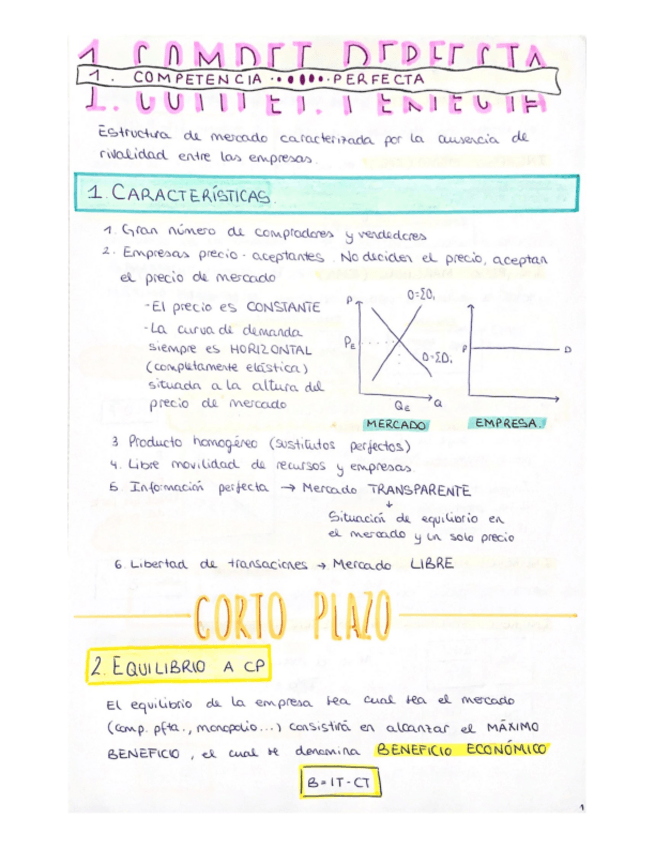 1. COMPET. PERFECTA
1. COMPETENCIA PERFECTA
Estructura de mercado caracterizada por la ausencia de
rivalidad entre las empresas.
1. CARACTERÍSTICAS.
1. Gran número de compradores y vendedores
2. Empresas precio-aceptantes. No deciden el precio, aceptan
el precio de mercado
- El precio es CONSTANTE
- La curva de demanda
siempre es HORIZONTAL
(completamente elástica)
situada a la altura del
precio de mercado
P
O=ΣOi
PE
D=ΣDi
QE
Q
MERCADO
P
D
EMPRESA.
3 Producto homogéneo (sustitutos perfectos)
4. Libre movilidad de recursos y empresas
5. Información perfecta → Mercado TRANSPARENTE
↓
Situación de equilibrio en
el mercado y un solo precio
6. Libertad de transaciones → Mercado LIBRE
CORTO PLAZO
2. EQUILIBRIO A CP
El equilibrio de la empresa sea cual sea el mercado
(comp. pfta., monopolio...) consistirá en alcanzar el MÁXIMO
BENEFICIO, el cual se denomina BENEFICIO ECONÓMICO
B=IT-CT
1